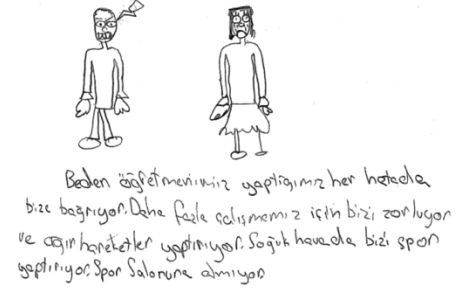 Beden öğretmenimiz yaptığımız her hatada
bize bağırıyor. Daha fazla çalışmamız için bizi zorluyor
ve ağır hareketler yaptırıyor. Soğuk havada bizi spor
yaptırıyor. Spor Salonuna almıyor